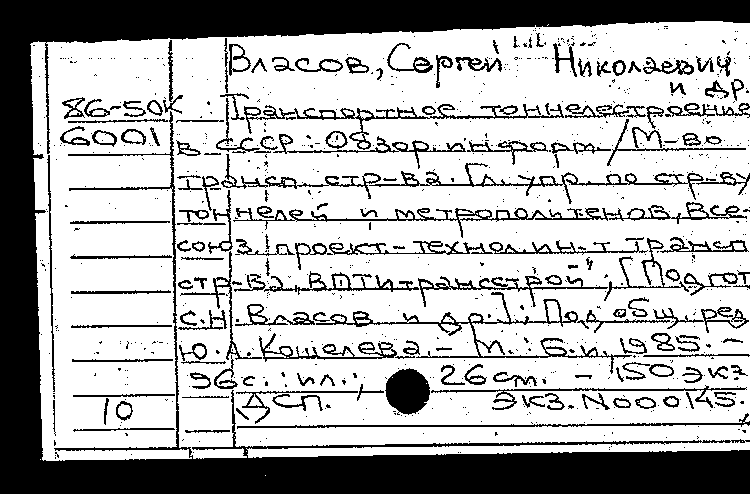 Власов, Сергей Николаевич
и др.
86-50К Транспортное тоннелестроение
6001 в СССР: Обзор. информ. / М-во
трансп. стр-ва. Гл. упр. по стр-ву
тоннелей и метрополитенов, Все-
союз. проект.-технол. ин-т трансп.
стр-ва "ВПТИтрансстрой"; [Подгот.
С.Н. Власов и др.]; Под общ. ред.
Ю.А. Кошелева. - М.: Б.и., 1985. -
96с.: ил.; 26 см. - 150 экз.
10 ДСП. Экз. N000145.